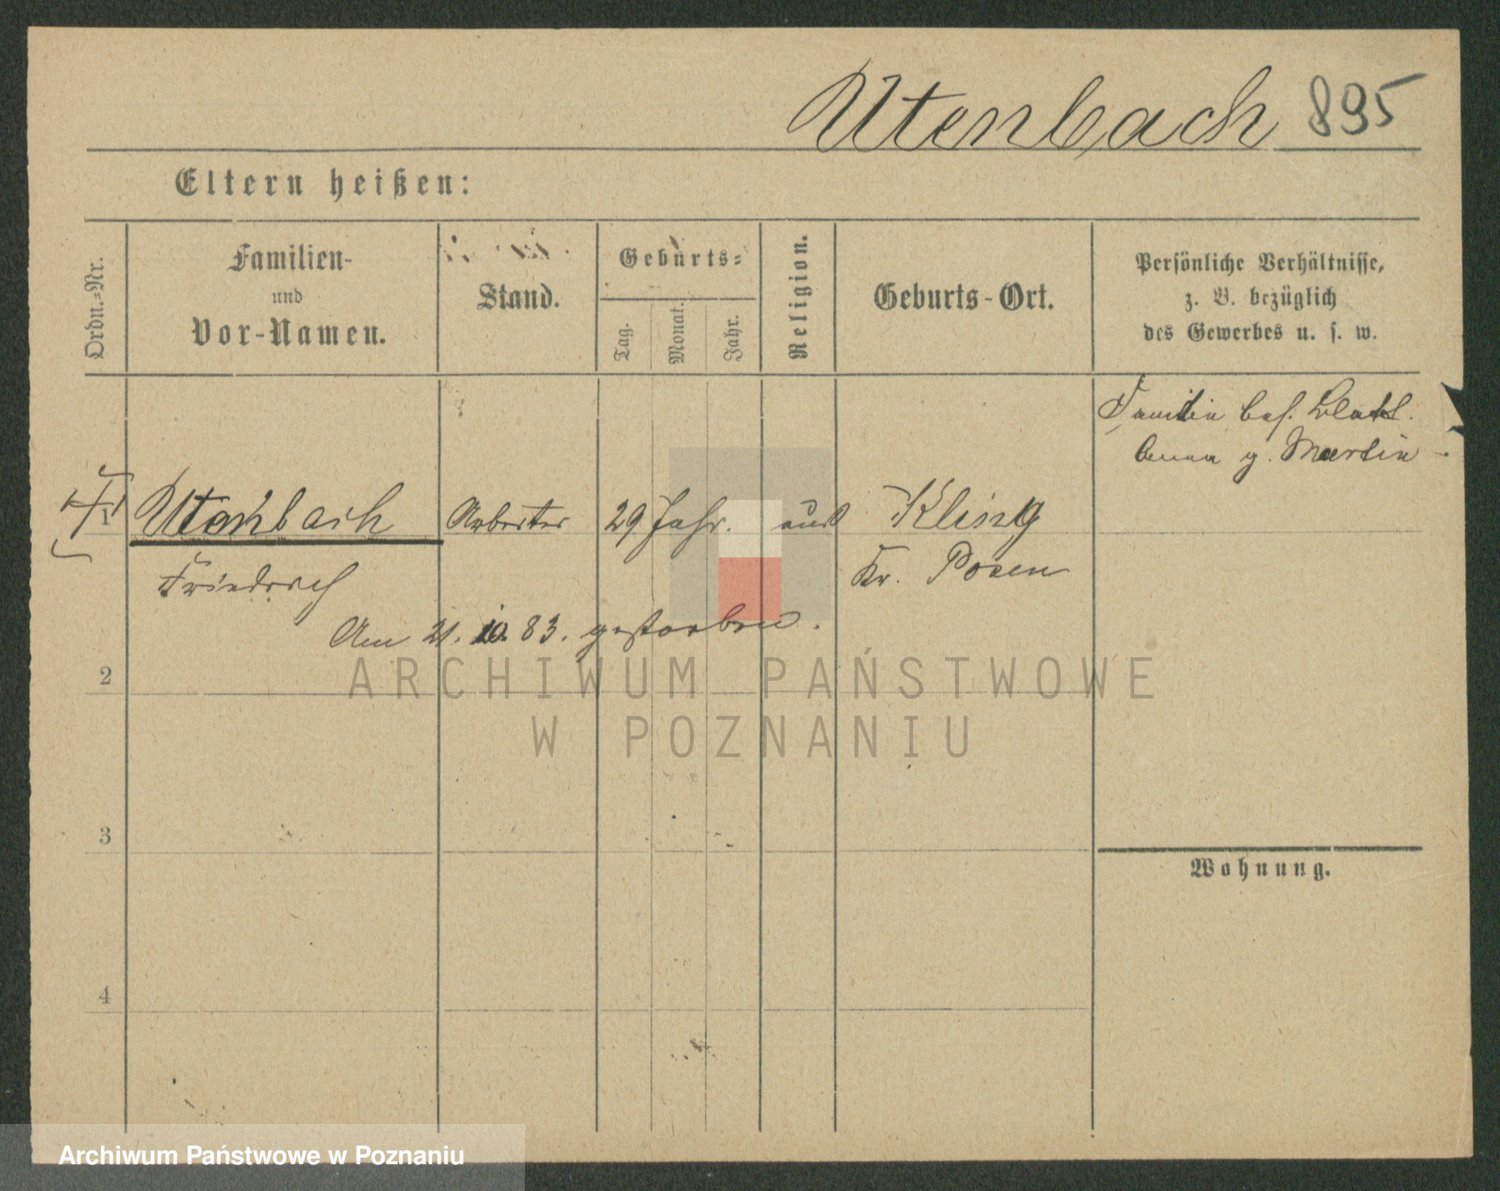 Utenbach 895
Eltern heißen:
Ordn.-Nr.
Familien-
und
Vor-Namen.
Stand.
Geburts-
Tag.
Monat.
Jahr.
Religion.
Geburts-Ort.
Persönliche Verhältnisse,
z. B. bezüglich
des Gewerbes u. s. w.
Familie bes. Blatt.
Anna g. Martin
1 Utenbach Arbeiter 29 Jahr. aus Kling
Friedrich Kr. Posen
Am 21. 10. 83. gestorben.
2
3
4
Wohnung.
ARCHIWUM PAŃSTWOWE
W POZNANIU
Archiwum Państwowe w Poznaniu